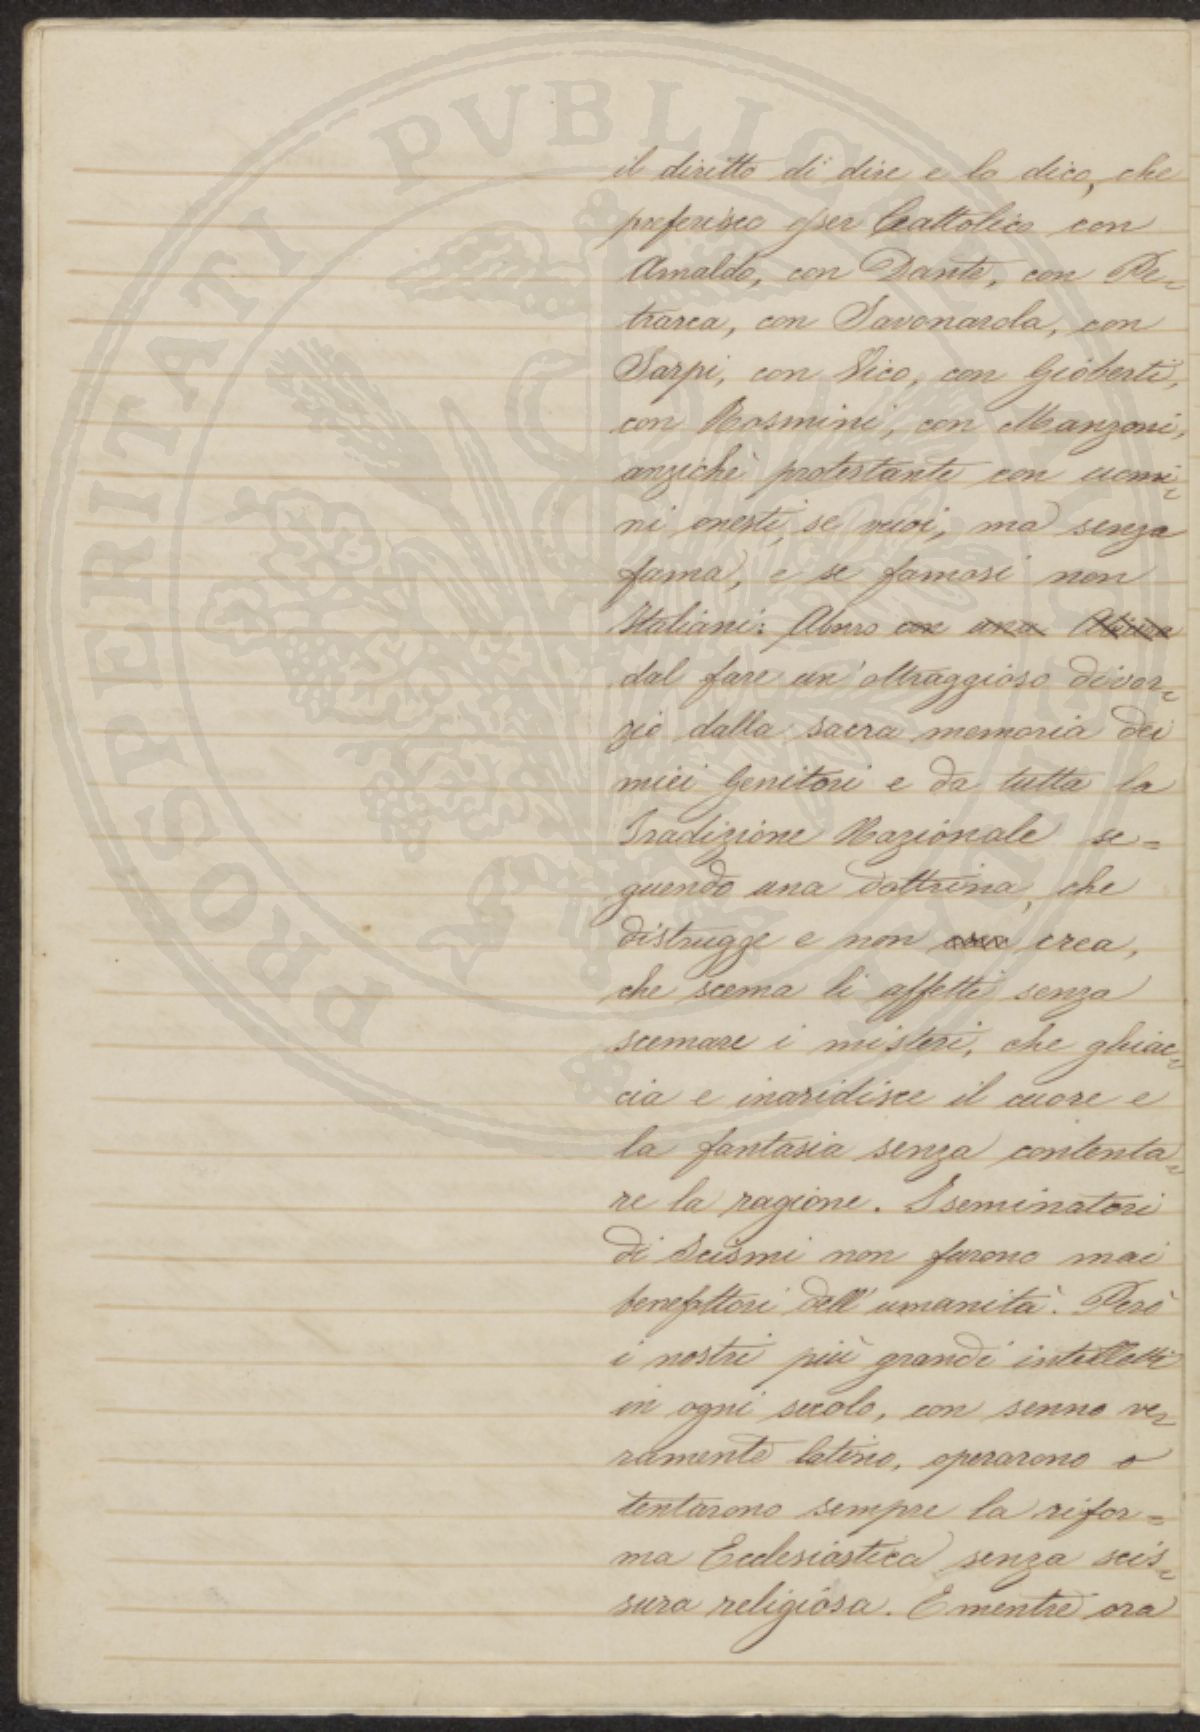 il diritto di dire e lo dico, che
preferisco esser Cattolico con
Arnaldo, con Dante, con Pe=
trarca, con Savonarola, con
Sarpi, con Vico, con Gioberti,
con Rosmini, con Manzoni,
anzichè protestante con uomi=
ni onesti, se vuoi, ma senza
fama, e se famosi non
Italiani: Aborro con una
dal fare un'oltraggioso divor=
zio dalla sacra memoria dei
miei Genitori e da tutta la
Tradizione Nazionale se=
guendo una dottrina, che
distrugge e non crea,
che scema li affetti senza
scemare i misteri, che ghiac=
cia e inaridisce il cuore e
la fantasia senza contenta=
re la ragione. I seminatori
di Scismi non furono mai
benefattori dell'umanità. Però
i nostri più grandi intelletti
in ogni secolo, con senno ve=
ramente latino, operarono o
tentarono sempre la rifor=
ma Ecclesiastica senza scis=
sura religiosa. E mentre ora
PROSPERITATI PVBLICAE